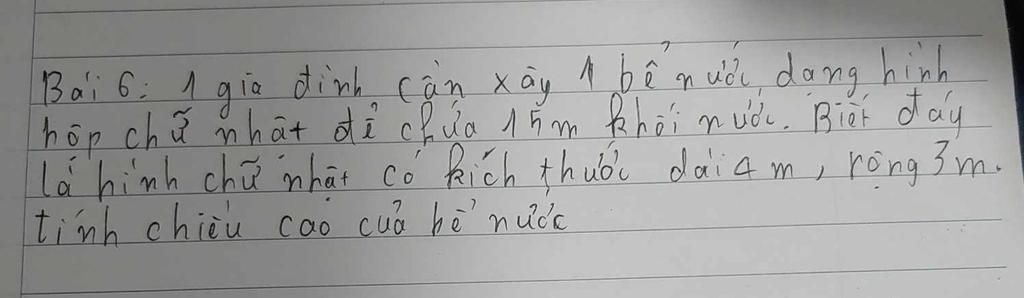 Bài 6: 1 gia đình cần xây 1 bể nước dạng hình
hộp chữ nhật để chứa 15m khối nước. Biết đáy
là hình chữ nhật có kích thước dài 4m, rộng 3m.
tính chiều cao của bể nước